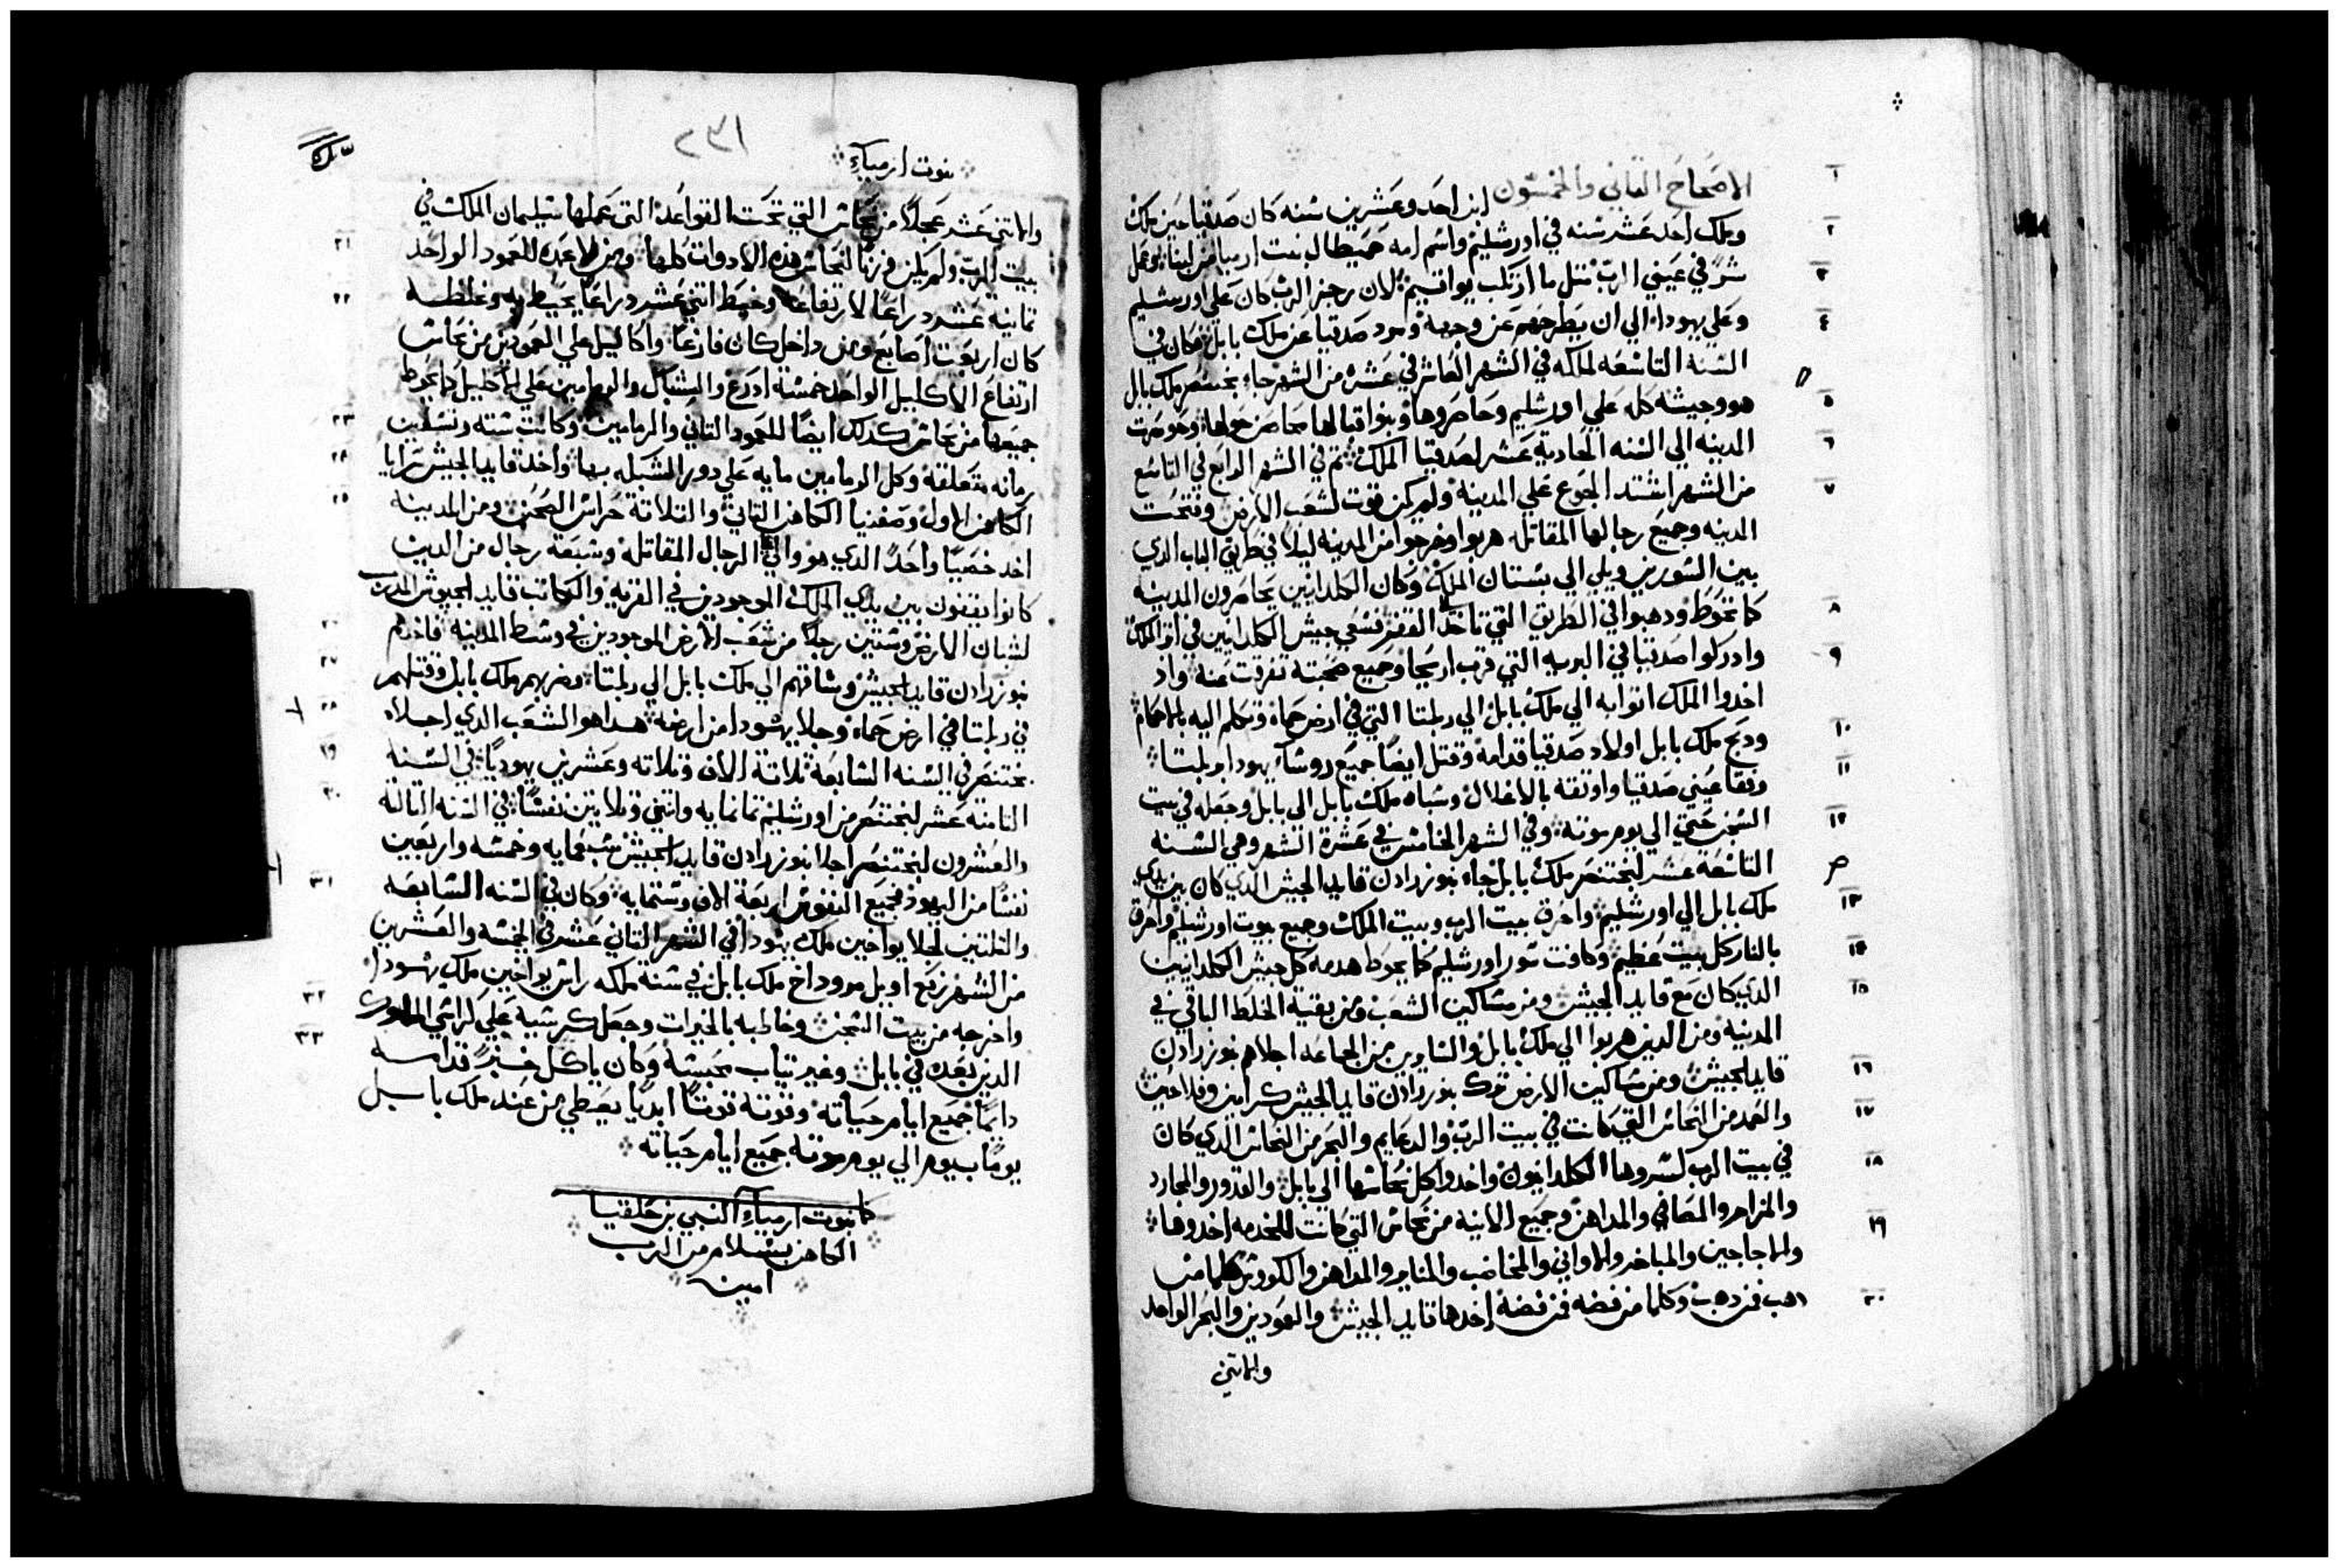 الاصحاح التاني والخمسون ابن احد وعشرين سنه كان صدقيا حين ملك
وملك احد عشر سنه في اورشليم واسم امه حميطال بنت ارميا من لبنا وعمل
شرً في عيني الرب متل ما ارتكب يواقيم لان رجز الرب كان علي اورشليم
وعلي يهودا الي ان يطرحهم عن وجهه ومرد صدقيا عن ملك بابل فكان في
السنه التاسعه لملكه في الشهر العاشر في عشرة من الشهر جاء بختنصر ملك بابل
هو وجيشه كله علي اورشليم وحاصروها وبنوا قبالها محاصن حولها وحوصرت
المدينه الي السنه الحادية عشر لصدقيا الملك تم في الشهر الرابع في التاسع
من الشهر اشتد الجوع علي المدينه ولم يكن قوت لشعب الارض وفتحت
المدينه وجميع رجالها المقاتله هربوا وخرجوا من المدينه ليلاً في طريق الباب الدي
بين السورين ويلي الي بستان الملك وكان الكلدانيين يحاصرون المدينه
كما تحوط ودهبوا في الطريق التي تاخد القفر فسعي جيش الكلدانيين في اتر الملك
وادركوا صدقيا في البريه التي قرب اريحا وجميع صحبته تفرقت عنه واد
اخدوا الملك اتوا به الي ملك بابل الي ربلتا التي في ارض حماه وتكلم اليه بالاحكام
ودبح ملك بابل اولاد صدقيا قدامه وقتل ايضاً جميع روسآء يهودا بربلتا
وفقا عيني صدقيا واوتقه بالاغلال وساه ملك بابل الي بابل وجعله في بيت
السجن حتي الي يوم موته وفي الشهر الخامس في عشرة الشهر وهي السنه
التاسعه عشر لبختنصر ملك بابل جاء نبوزرادن قايد الجيش الدي كان بين يدي
ملك بابل الي اورشليم واحرق بيت الرب وبيت الملك وجميع بيوت اورشليم واحرق
بالنار كل بيت عظيم وكافت سور اورشليم كما يحوط هدمه كل جيش الكلدانيين
الدي كان مع قايد الجيش ومن مساكين الشعب ومن بقية الخلط الباقي في
المدينه ومن الدين هربوا الي ملك بابل والساير من الجماعه اجلاهم نبوزرادن
قايد الجيش ومن مساكين الارض ترك نبوزرادن قايد الجيش كرامين وفلاحين
والعمد من النحاس التي كانت في بيت الرب والدعايم والبحر من النحاس الدي كان
في بيت الرب كسروها الكلدانيون واخدوا كل نحاسها الي بابل والقدور والمجارد
والمزاهر والمصافي والمداهن وجميع الانية من نحاس التي كانت للخدمه اخدوها
والاجاجين والمباخر والاواني والمخاضب والمناير والمداهن والكووش كلما من
دهب فمن دهب وكلما من فضه فمن فضة اخدها قايد الجيش والعمودين والبحر الواحد
والاتني
٢٣١
نبوت ارمياء
والاتني عشر عجلاً من نحاس التي تحت القواعد التي عملها سليمان الملك في
بيت الرب ولم يكن وزناً لنحاس هده الادوات كلها ومن الاعمده للعمود الواحد
تمانيه عشر دراعاً لارتفاعه وخيط اتني عشر دراعاً يحيط به وغلظه
كان اربعت اصابع ومن داخل كان فارغاً واكاليل علي العمودين من نحاس
ارتفاع الاكليل الواحد خمسة ادرع والشباك والرمامين علي الاكليل كما يحوط
جميعها من نحاس كدلك ايضاً للعمود التاني والرمامين وكانت سته وتسعين
رمانه متعلقه وكل الرمامين مايه علي دور الشبكه بها واخد قايد الجيش سرايا
الكاهن الاول وصفنيا الكاهن التاني والتلاتة حراس الصحن ومن المدينه
اخد خصيًا واحدً الدي هو والي الرجال المقاتله وسبعة رجال من الدين
كانوا يقفون بين يدي الملك الموجودين في القريه والكاتب قايد الجيوش المدرب
لشبان الارض وستين رجلاً من شعب الارض الموجودين في وسط المدينه فاخدهم
نبوزرادن قايد الجيش وساقهم الي ملك بابل الي ربلتا وضربهم ملك بابل وقتلهم
في ربلتا في ارض حماه وجلا يهودا من ارضه هدا هو الشعب الدي اجلاه
بختنصر في السنه السابعة تلاتة الاف وتلاته وعشرين يهوديًا في السنه
التامنه عشر لبختنصر من اورشليم تمانمايه واتني وتلاتين نفسًا في السنه التالتة
والعشرون لبختنصر اجلا نبوزرادن قايد الجيش سبعمايه وخمسه واربعين
نفسًا من اليهود فجميع النفوس اربعة الاف وستمايه وكان في السنه السابعه
والتلتين لجلا يواخين ملك يهودا في الشهر التاني عشر في الخمسه والعشرين
من الشهر رفع اويل مروداخ ملك بابل في سنة ملكه راس يواخين ملك يهودا
واخرجه من بيت السجن وخاطبه بالخيرات وجعل كرسيه علي كراسي الملوك
الدين بعده في بابل وغير تياب محبسه وكان ياكل خبزً قدامه
دايمًا جميع ايام حياته وقوته قوتًا ابديًا يعطي من عند ملك بابل
يومًا بيوم الي يوم موته جميع ايام حياته
كملت نبوت ارمياء النبي بن حلقيا
الكاهن بسلام من الرب
امين